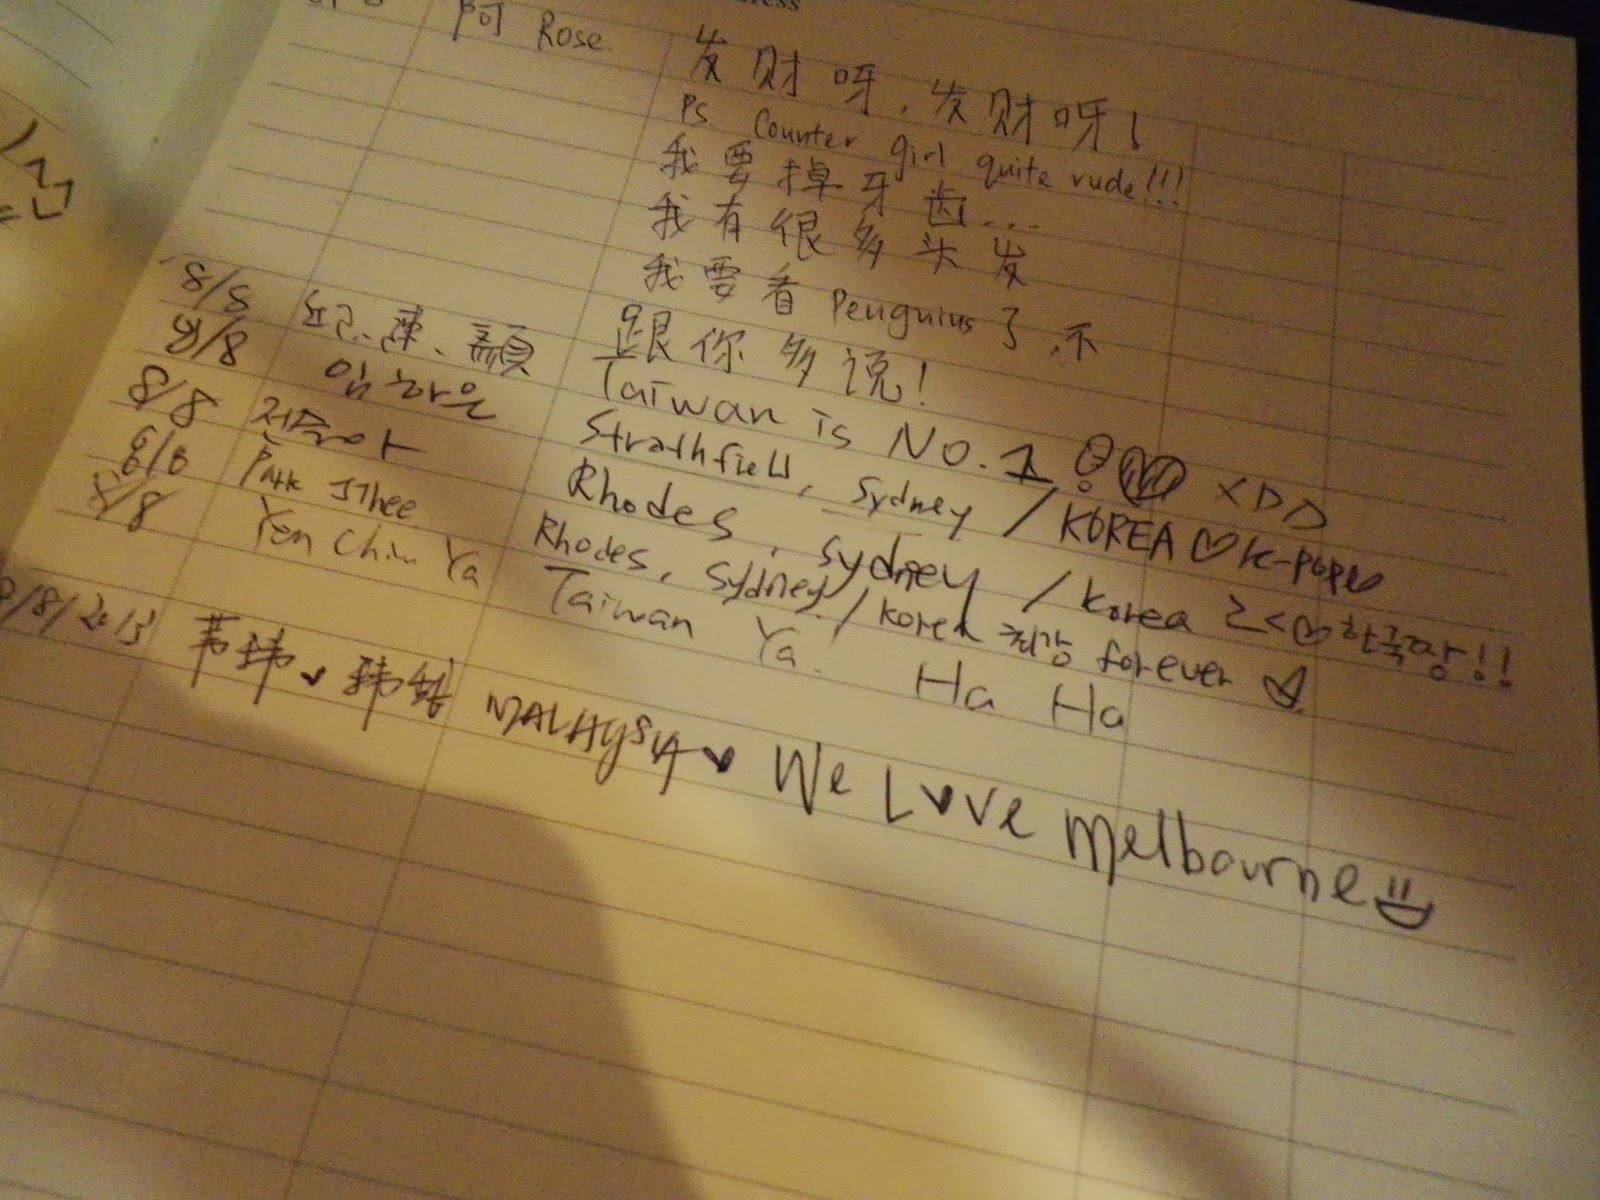 阿 Rose 发财呀，发财呀！
PS. Counter girl quite rude!!!
我要掉牙齿...
我有很多头发
我要看 Penguins 了，不
跟你多说！
8/8 紀、陳、顏 Taiwan is No.1 ! XDD
8/8 임하은 Strathfield, Sydney / KOREA ♡ K-POP
8/8 전주아 Rhodes, Sydney / Korea 근<♡한국짱!!
8/8 PARK JIhee Rhodes, Sydney / Korea 최강 forever ♡
8/8 Yen Chin Ya Taiwan Ya. Ha Ha
8/8/2013 MALAYSIA ♥ We Love Melbourne